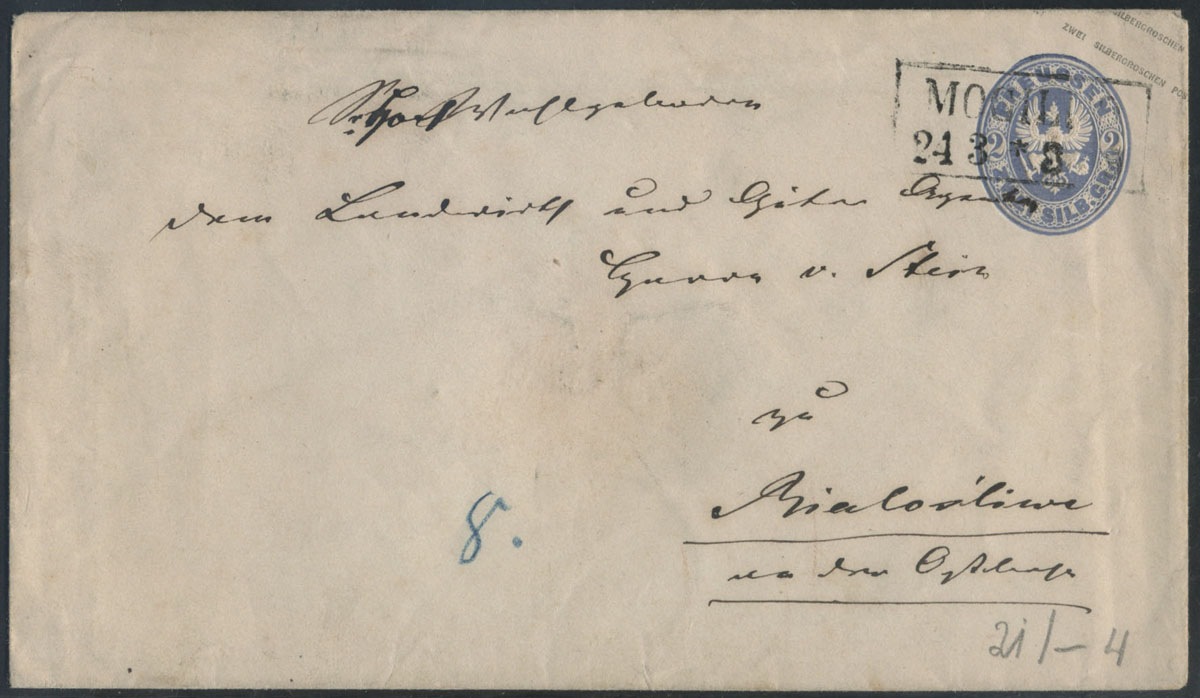 SILBERGROSCHEN
ZWEI SILBERGROSCHEN POS
PREUSSEN
2 2
ZWEI SILB. GR.
MOGIL
24 3 * 3
Wohlgeboren
dem Landwirth und Güter Agenten
Herrn v. Stein
zu
Bialośliwe
an der Ostbahn
8.
21/– 4